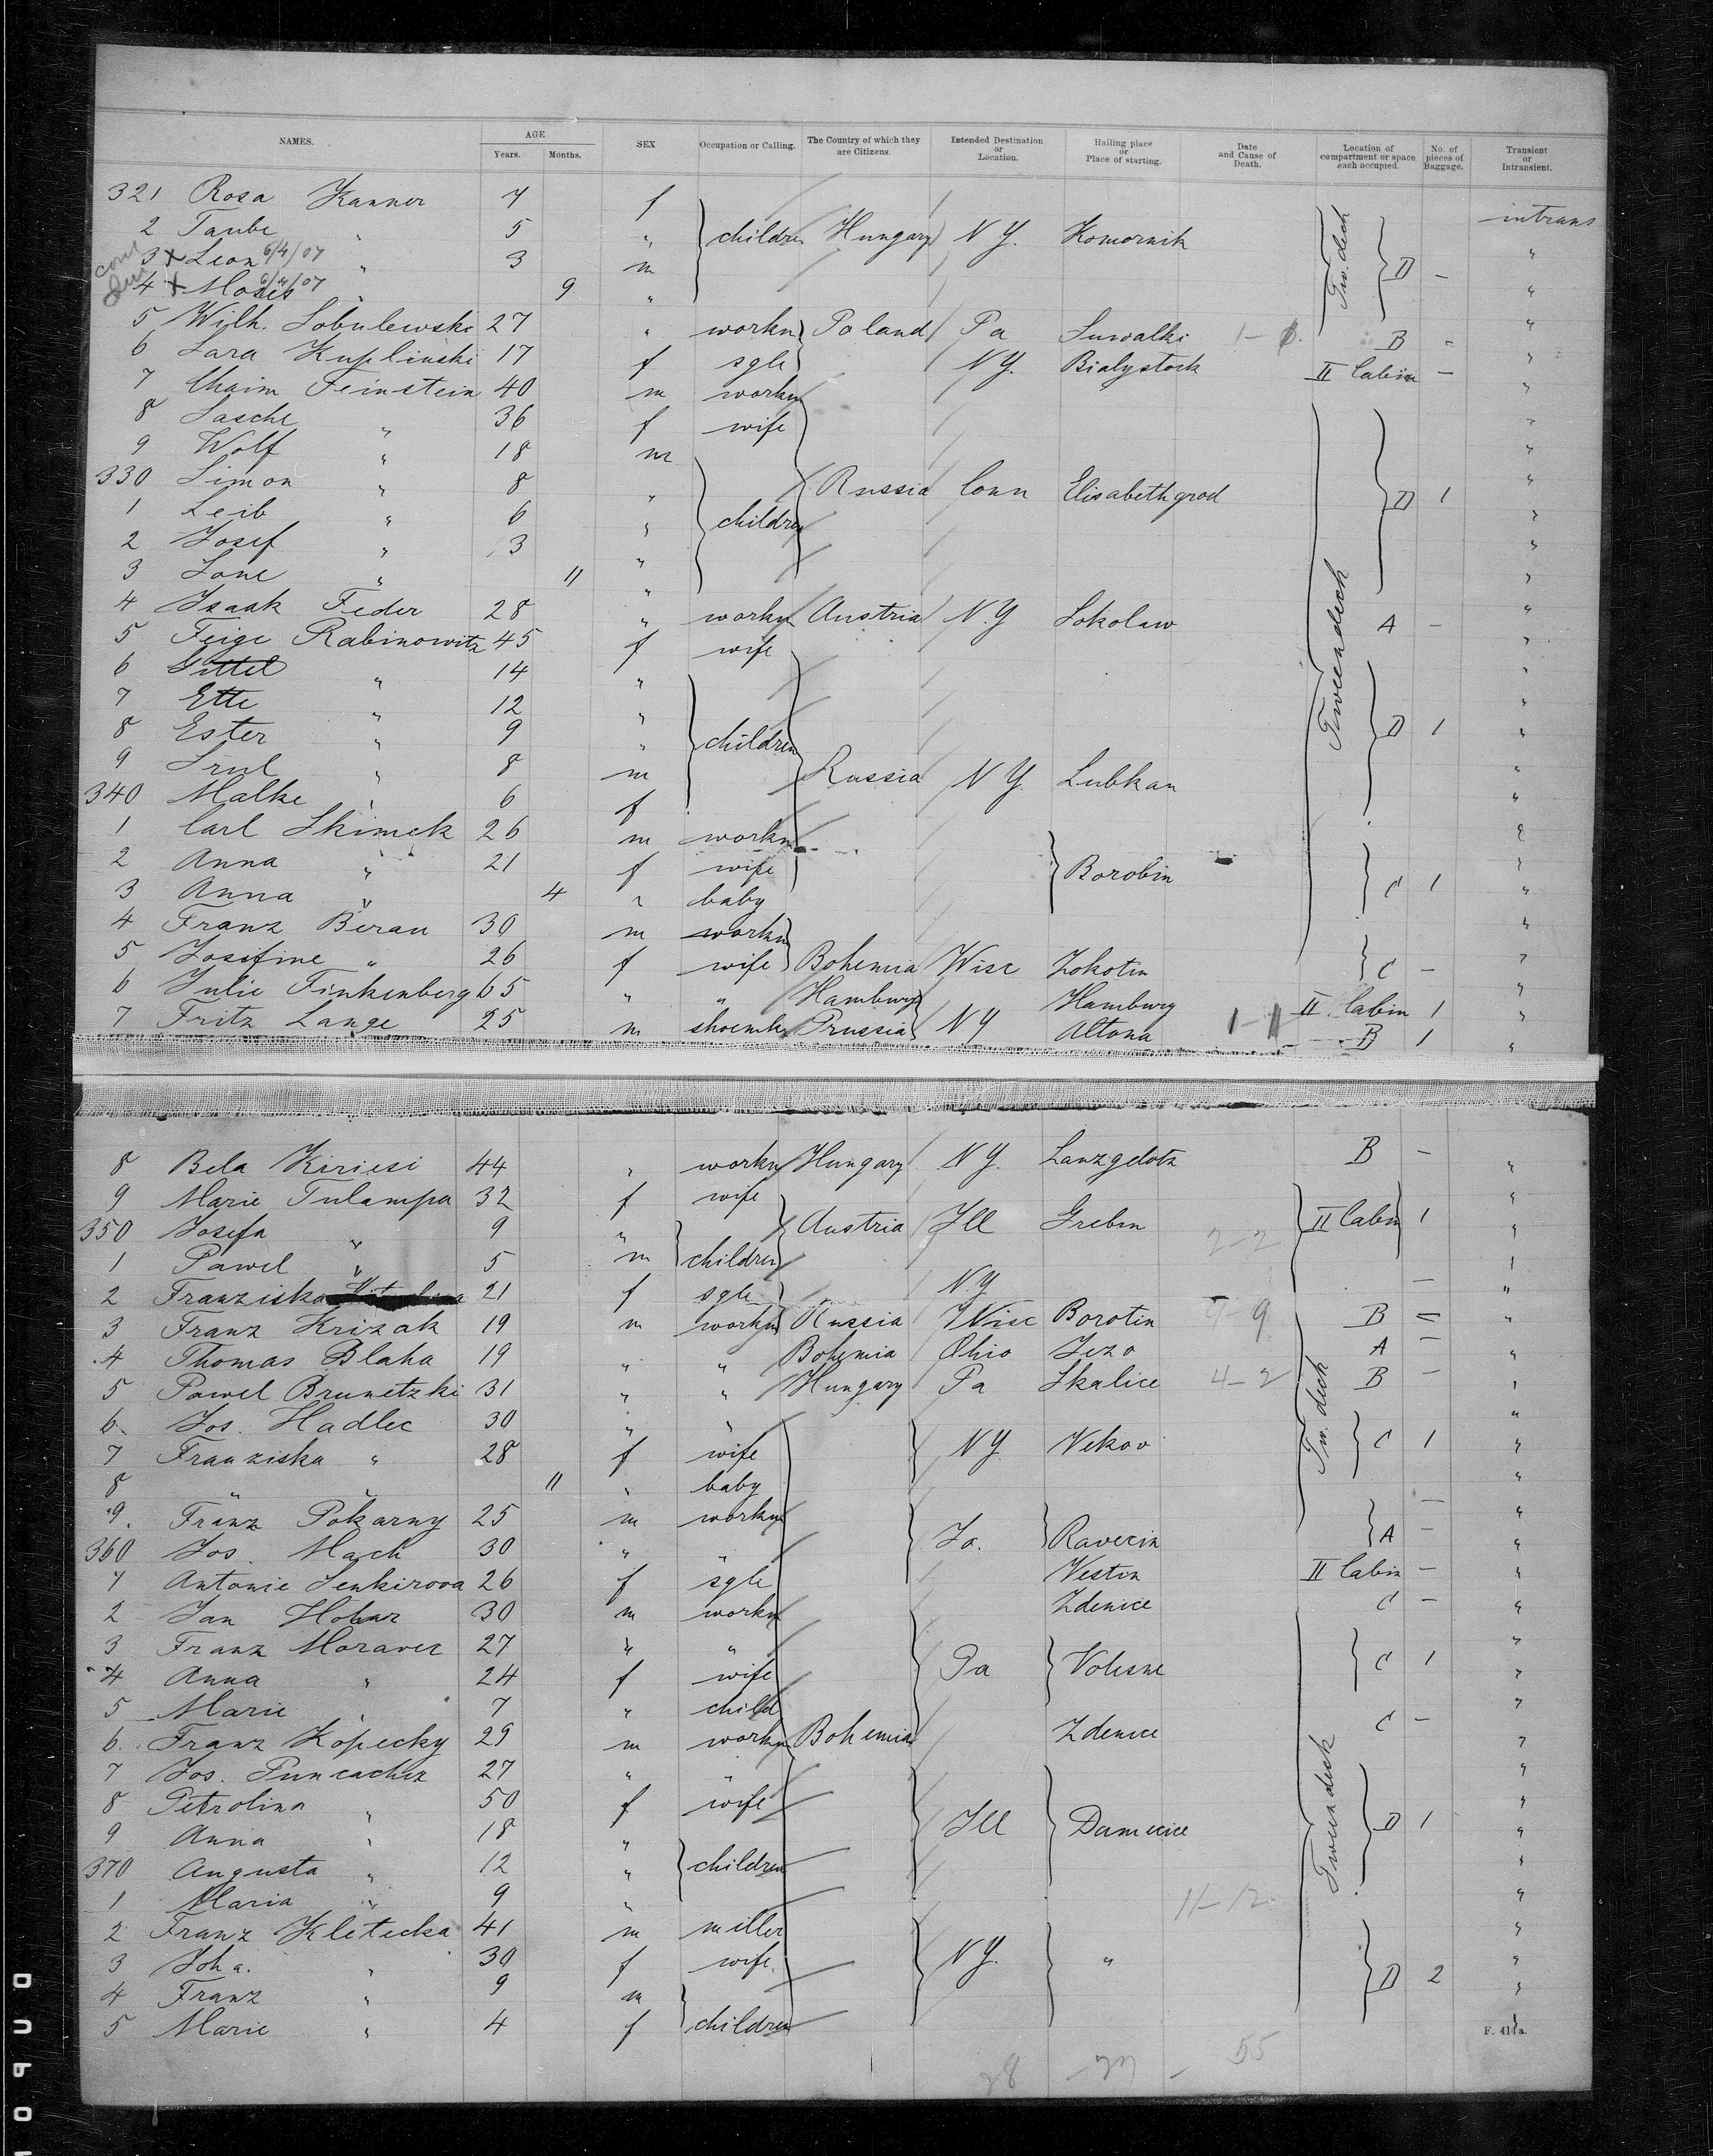 NAMES. AGE Years. Months. SEX Occupation or Calling. The Country of which they are Citizens. Intended Destination or Location. Hailing place or Place of starting. Date and Cause of Death. Location of compartment or space each occupied. No. of pieces of Baggage. Transient or Intransient.
321 Rosa Kanner 7 f intrans
2 Taube " 5 " children Hungary N.Y. Komornik Tw. deck D - "
3 x Leon 6/4/07 " 3 m "
4 x Moses 6/4/07 " 9 " "
5 Wilh. Sobulewski 27 " workn Poland Pa Suwalki B - "
6 Sara Kuplinski 17 f sgle N.Y. Bialystock II Cabin - "
7 Chaim Feinstein 40 m workn "
8 Sasche " 36 f wife "
9 Wolf " 18 m "
330 Simon " 8 " Russia Conn Elisabethgrod D 1 "
1 Leib " 6 " children "
2 Josef " 3 " "
3 Sone " 11 " Tweendeck "
4 Isaak Feder 28 " workn Austria N.Y Sokolaw A - "
5 Feige Rabinowitz 45 f wife "
6 Gittel " 14 " "
7 Ette " 12 " "
8 Ester " 9 " children D 1 "
9 Srul " 8 m Russia N.Y. Lubkan "
340 Malke " 6 f "
1 Carl Skimek 26 m workn "
2 Anna " 21 f wife Borobin "
3 Anna " 4 " baby C 1 "
4 Franz Beran 30 m workn "
5 Josefine " 26 f wife Bohemia Wisc Zokotin C - "
6 Julie Finkenberg 65 " " Hamburg Hamburg II Cabin 1 "
7 Fritz Lange 25 m shoemk Prussia NY Altona 1-1 B 1 "
8 Bela Kiriesi 44 " workn Hungary N.Y. Lanzgelotz B - "
9 Marie Tulampa 32 f wife "
350 Josefa " 9 " Austria Ill Grebin 2-2 II Cabin 1 "
1 Pawel " 5 m children "
2 Franziska 21 f sgle NY - "
3 Franz Krizak 19 m workn Russia Wisc Borotin 9 B = "
4 Thomas Blaha 19 " " Bohemia Ohio Jezo A - "
5 Pawel Brunetzki 31 " " Hungary Pa Skalice 4-2 Tw. deck B - "
6. Jos. Hadlec 30 " " "
7 Franziska " 28 f wife N.Y. Vekov C 1 "
8 " " 11 " baby "
9. Franz Pokarny 25 m workn - "
360 Jos. Mach 30 " " Io. Raverin A - "
1 Antonie Senkirova 26 f sgle Westin II Cabin - "
2 Jan Hohar 30 m workn Zdenice C - "
3 Franz Moravec 27 " " "
4 Anna " 24 f wife Pa Volesne C 1 "
5 Marie " 7 " child "
6. Franz Kopecky 29 m workn Bohemia Zdenice C - "
7 Jos. Puncachez 27 " " "
8 Petrolina " 50 f wife "
9 Anna " 18 " Ill Damecice Tweendeck D 1 "
370 Augusta " 12 " children "
1 Maria " 9 " 11-12 "
2 Franz Kletecka 41 m miller "
3 Joha. " 30 f wife. N.Y. " "
4 Franz " 9 m D 2 "
5 Marie " 4 f children "
F. 414a.
55